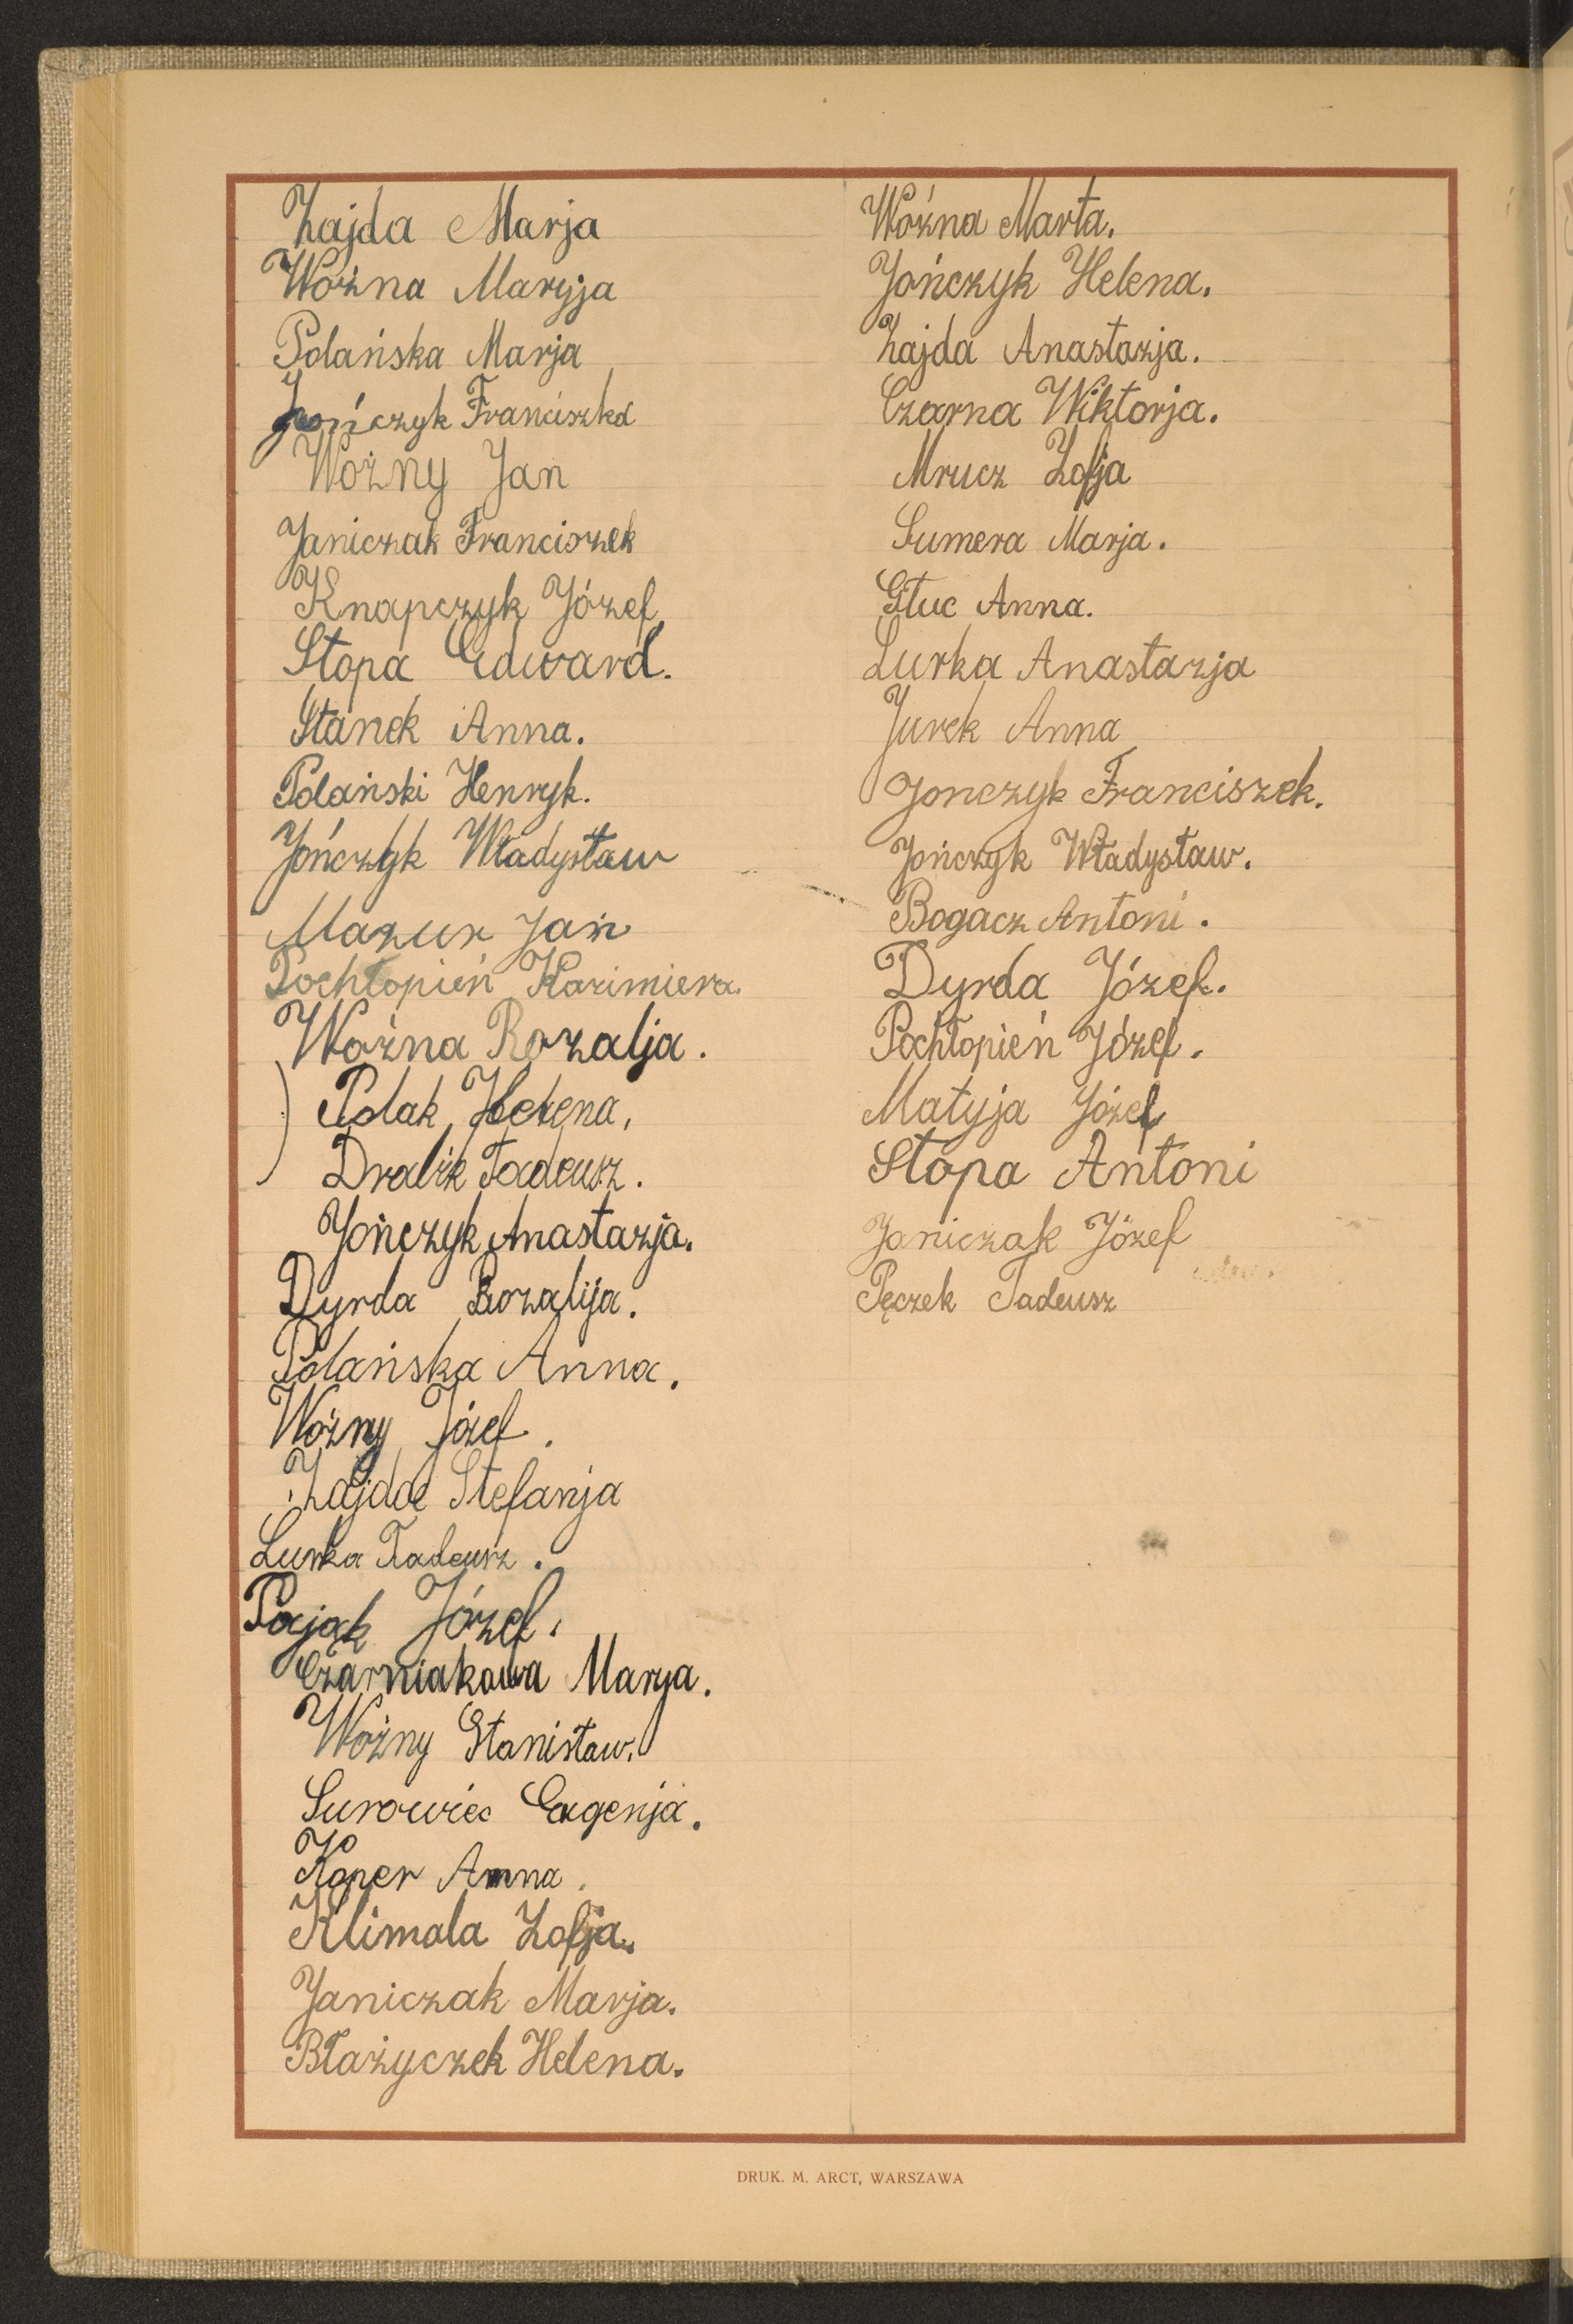 Zajda Marja
Woźna Maryja
Polańska Marja
Jończyk Franciszka
Woźny Jan
Janiczak Franciszek
Knapczyk Józef
Stopa Edward.
Stanek Anna.
Polański Henryk.
Jończyk Władysław
Mazur Jan
Pochłopień Kazimiera.
Woźna Rozalja.
Polak Helena,
Dralik Tadeusz.
Jończyk Anastazja.
Dyrda Rozalija.
Polańska Anna.
Woźny Józef.
Zajda Stefanja
Lurka Tadeusz.
Pająk Józef.
Czarniakowa Marya.
Woźny Stanisław.
Surowiec Eugenja.
Koper Anna.
Klimala Zofja.
Janiczak Marja.
Błażyczek Helena.
Woźna Marta.
Jończyk Helena.
Zajda Anastazja.
Czarna Wiktorja.
Mrucz Zofja
Sumera Marja.
Głuc Anna.
Lurka Anastazja
Jurek Anna
Jonczyk Franciszek.
Jończyk Władysław.
Bogacz Antoni.
Dyrda Józef.
Pochłopień Józef.
Matyja Józef
Stopa Antoni
Janiczak Józef
Pęczek Tadeusz
DRUK. M. ARCT, WARSZAWA